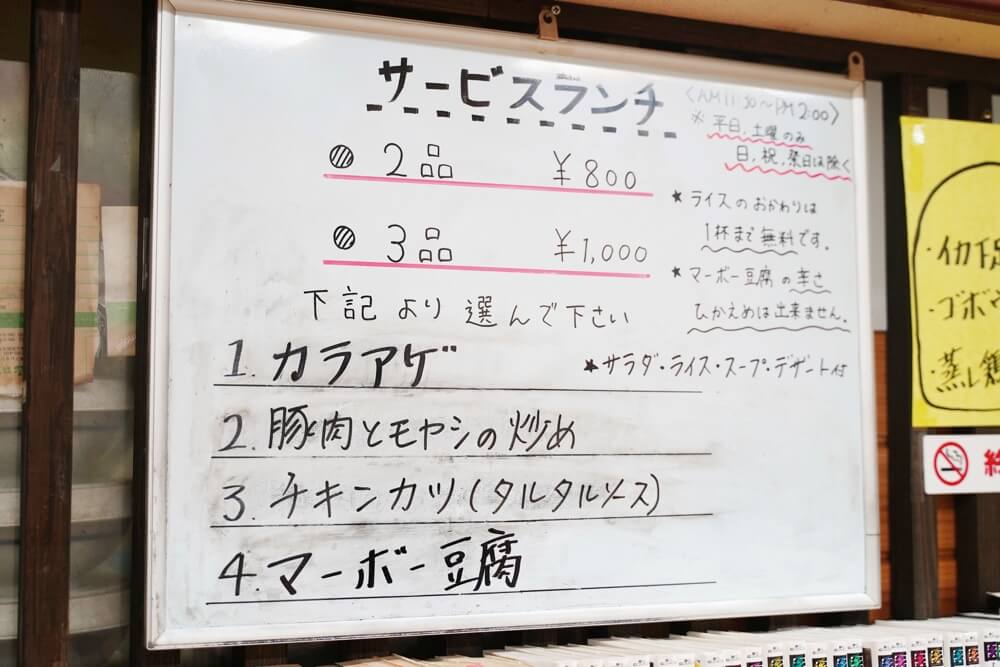 サービスランチ
〈AM11:30～PM2:00〉
※平日,土曜のみ
日,祝,祭日は除く
2品 ¥800
3品 ¥1,000
★ライスのおかわりは
1杯まで無料です。
★マーボー豆腐の辛さ
ひかえめは出来ません。
下記より選んで下さい
★サラダ・ライス・スープ・デザート付
1.カラアゲ
2.豚肉とモヤシの炒め
3.チキンカツ(タルタルソース)
4.マーボー豆腐
・イカ下足
・ゴボウ
・蒸し鶏